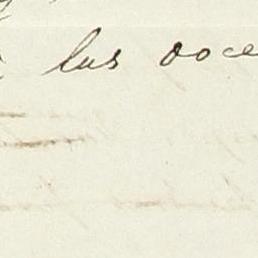 las doce